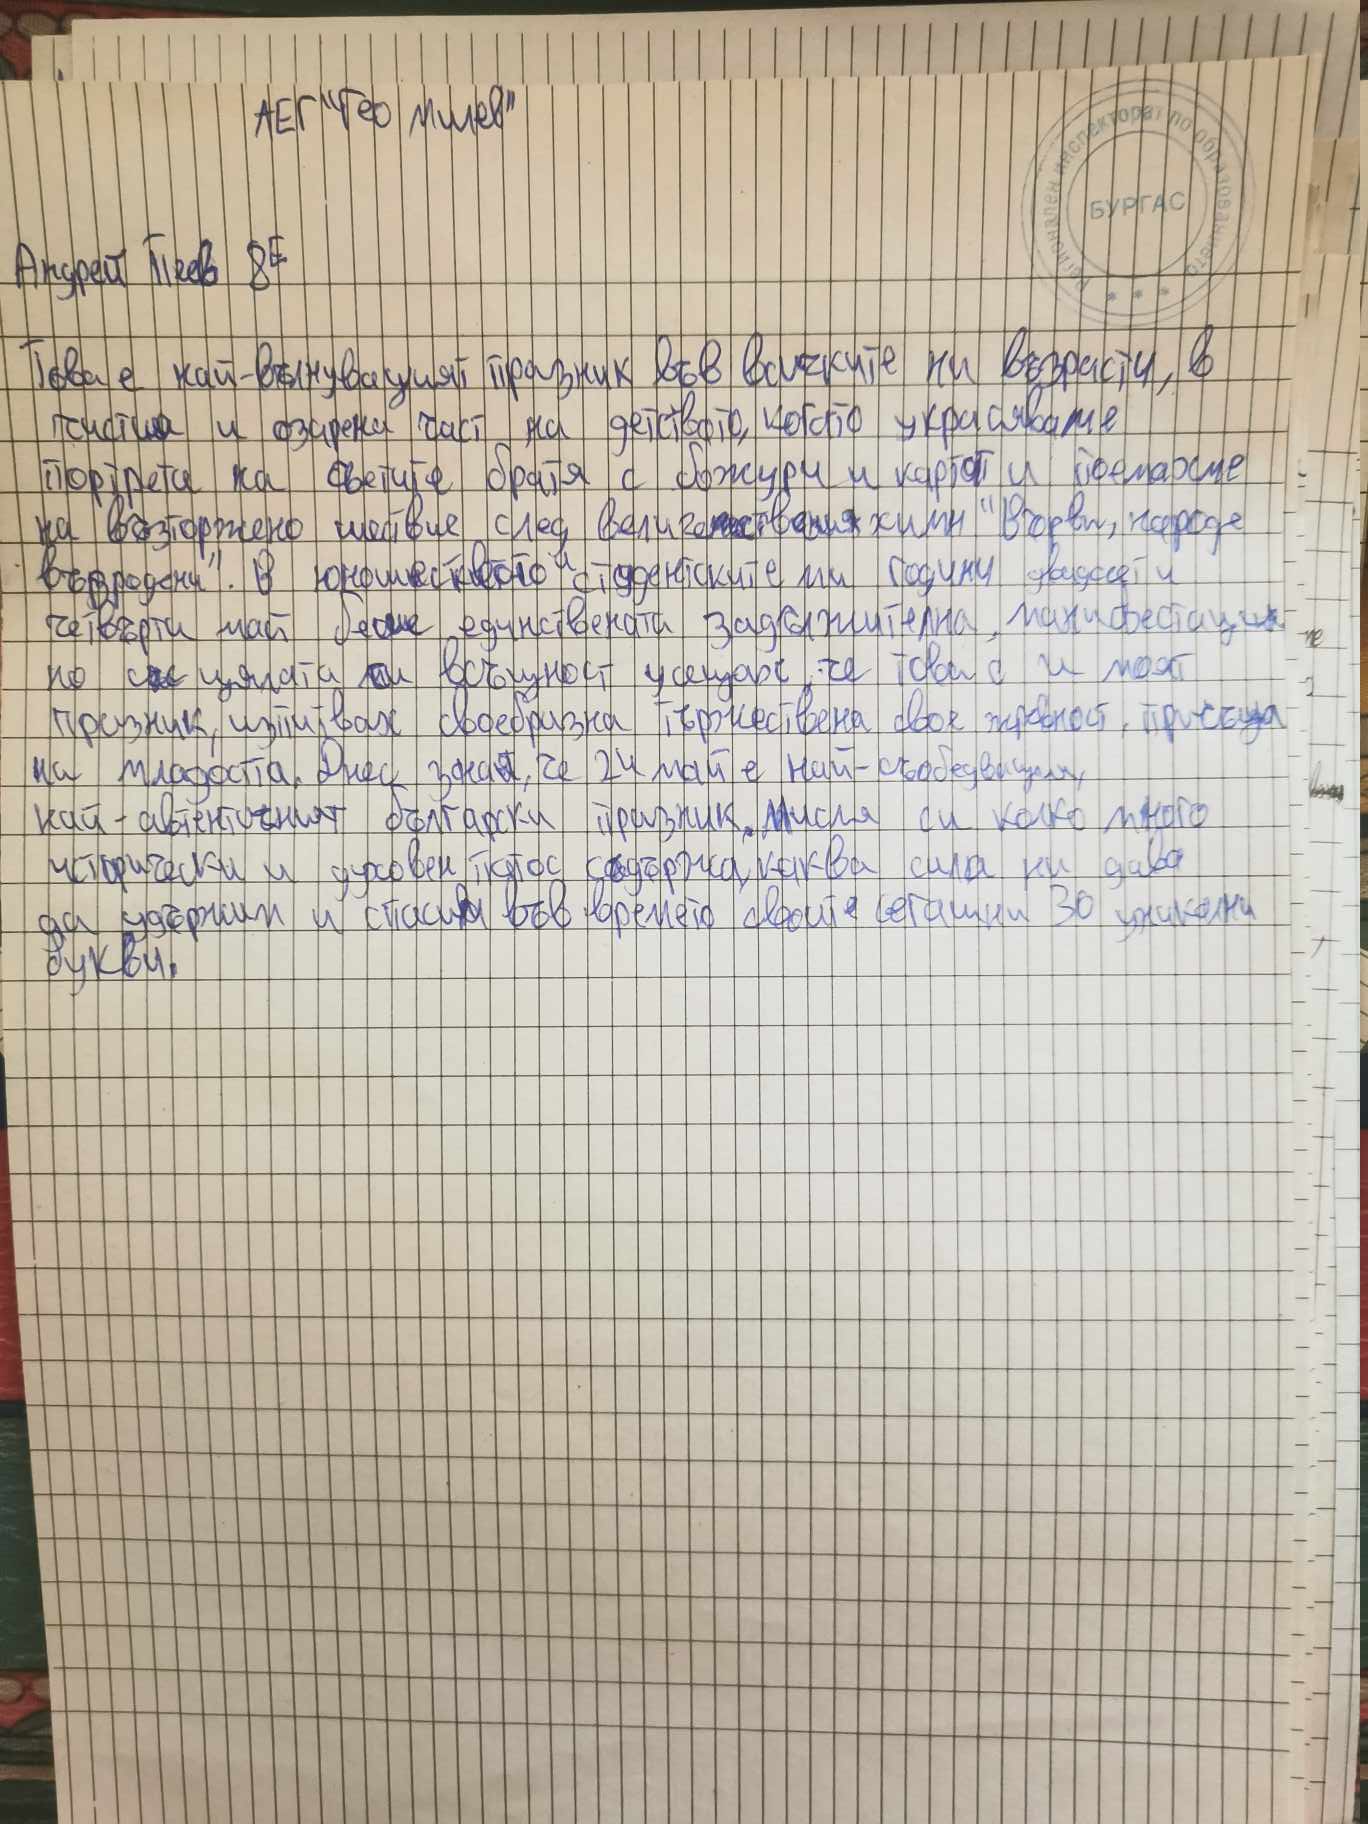 АЕГ "Гео Милев"
Регионален инспекторат по образованието
БУРГАС
Андрей 8Е
Това е най-вълнуващият празник във всичките ни възрасти, в
чистия и озарена част на детството, когато украсяваме
портрета на светите братя с божури и и поемахме
на възторжено шествие след величествения химн "Върви, народе
възродени". В юношеството и студентските ми години двадесет и
четвърти май беше единствената задължителна манифестация
но със цялата си всъщност усещах, че това е и моят
празник, изпитвах своеобразна тържествена
на младостта. Днес зная, че 24 май е най-
най-автентичният български празник. Мисля си колко много
исторически и духовен съдържа, каква сила ни дава
да удържим и спасим във времето своите сегашни 30 уникални
букви.